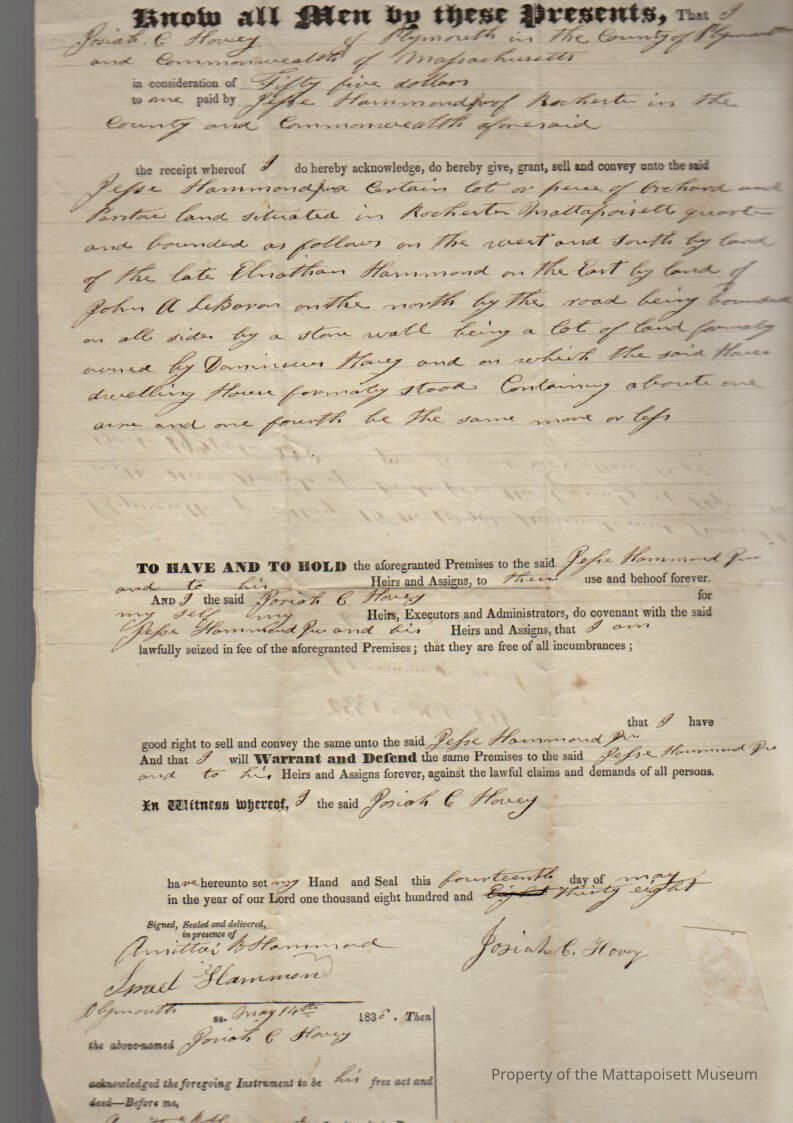 Know all Men by these Presents, That I
Josiah C Hovey of Plymouth in the County of Plymouth
and Commonwealth of Massachusetts
in consideration of Fifty five dollars
to me paid by Jesse Hammond Jur of Rochester in the
County and Commonwealth aforesaid
the receipt whereof I do hereby acknowledge, do hereby give, grant, sell and convey unto the said
Jesse Hammond Jur a Certain lot or piece of Orchard and
land situated in Rochester Mattapoisett quarter
and bounded as follows on the west and South by land
of the late Elnathan Hammond on the East by land of
John A LeBaron on the north by the road being bounded
on all sides by a stone wall being a lot of land formaly
owned by Dominicus Hovey and on which the said Hovey
dwelling House formaly stood Containing aboute one
acre and one fourth be the same more or less
TO HAVE AND TO HOLD the aforegranted Premises to the said Jesse Hammond Jur
and to his Heirs and Assigns, to their use and behoof forever.
AND I the said Josiah C Hovey for
my self my Heirs, Executors and Administrators, do covenant with the said
Jesse Hammond Jur and his Heirs and Assigns, that I am
lawfully seized in fee of the aforegranted Premises; that they are free of all incumbrances;
that I have
good right to sell and convey the same unto the said Jesse Hammond Jur
And that I will Warrant and Defend the same Premises to the said Jesse Hammond Jur
and to his Heirs and Assigns forever, against the lawful claims and demands of all persons.
In Witness whereof, I the said Josiah C Hovey
have hereunto set my Hand and Seal this fourteenth day of may
in the year of our Lord one thousand eight hundred and Eight Thirty eight
Signed, Sealed and delivered,
in presence of
Amittai B Hammond
Josiah C. Hovey
Israel Hammond
Plymouth ss. May 14th 1838. Then
the above-named Josiah C Hovey
acknowledged the foregoing Instrument to be his free act and
deed—Before me,
Property of the Mattapoisett Museum